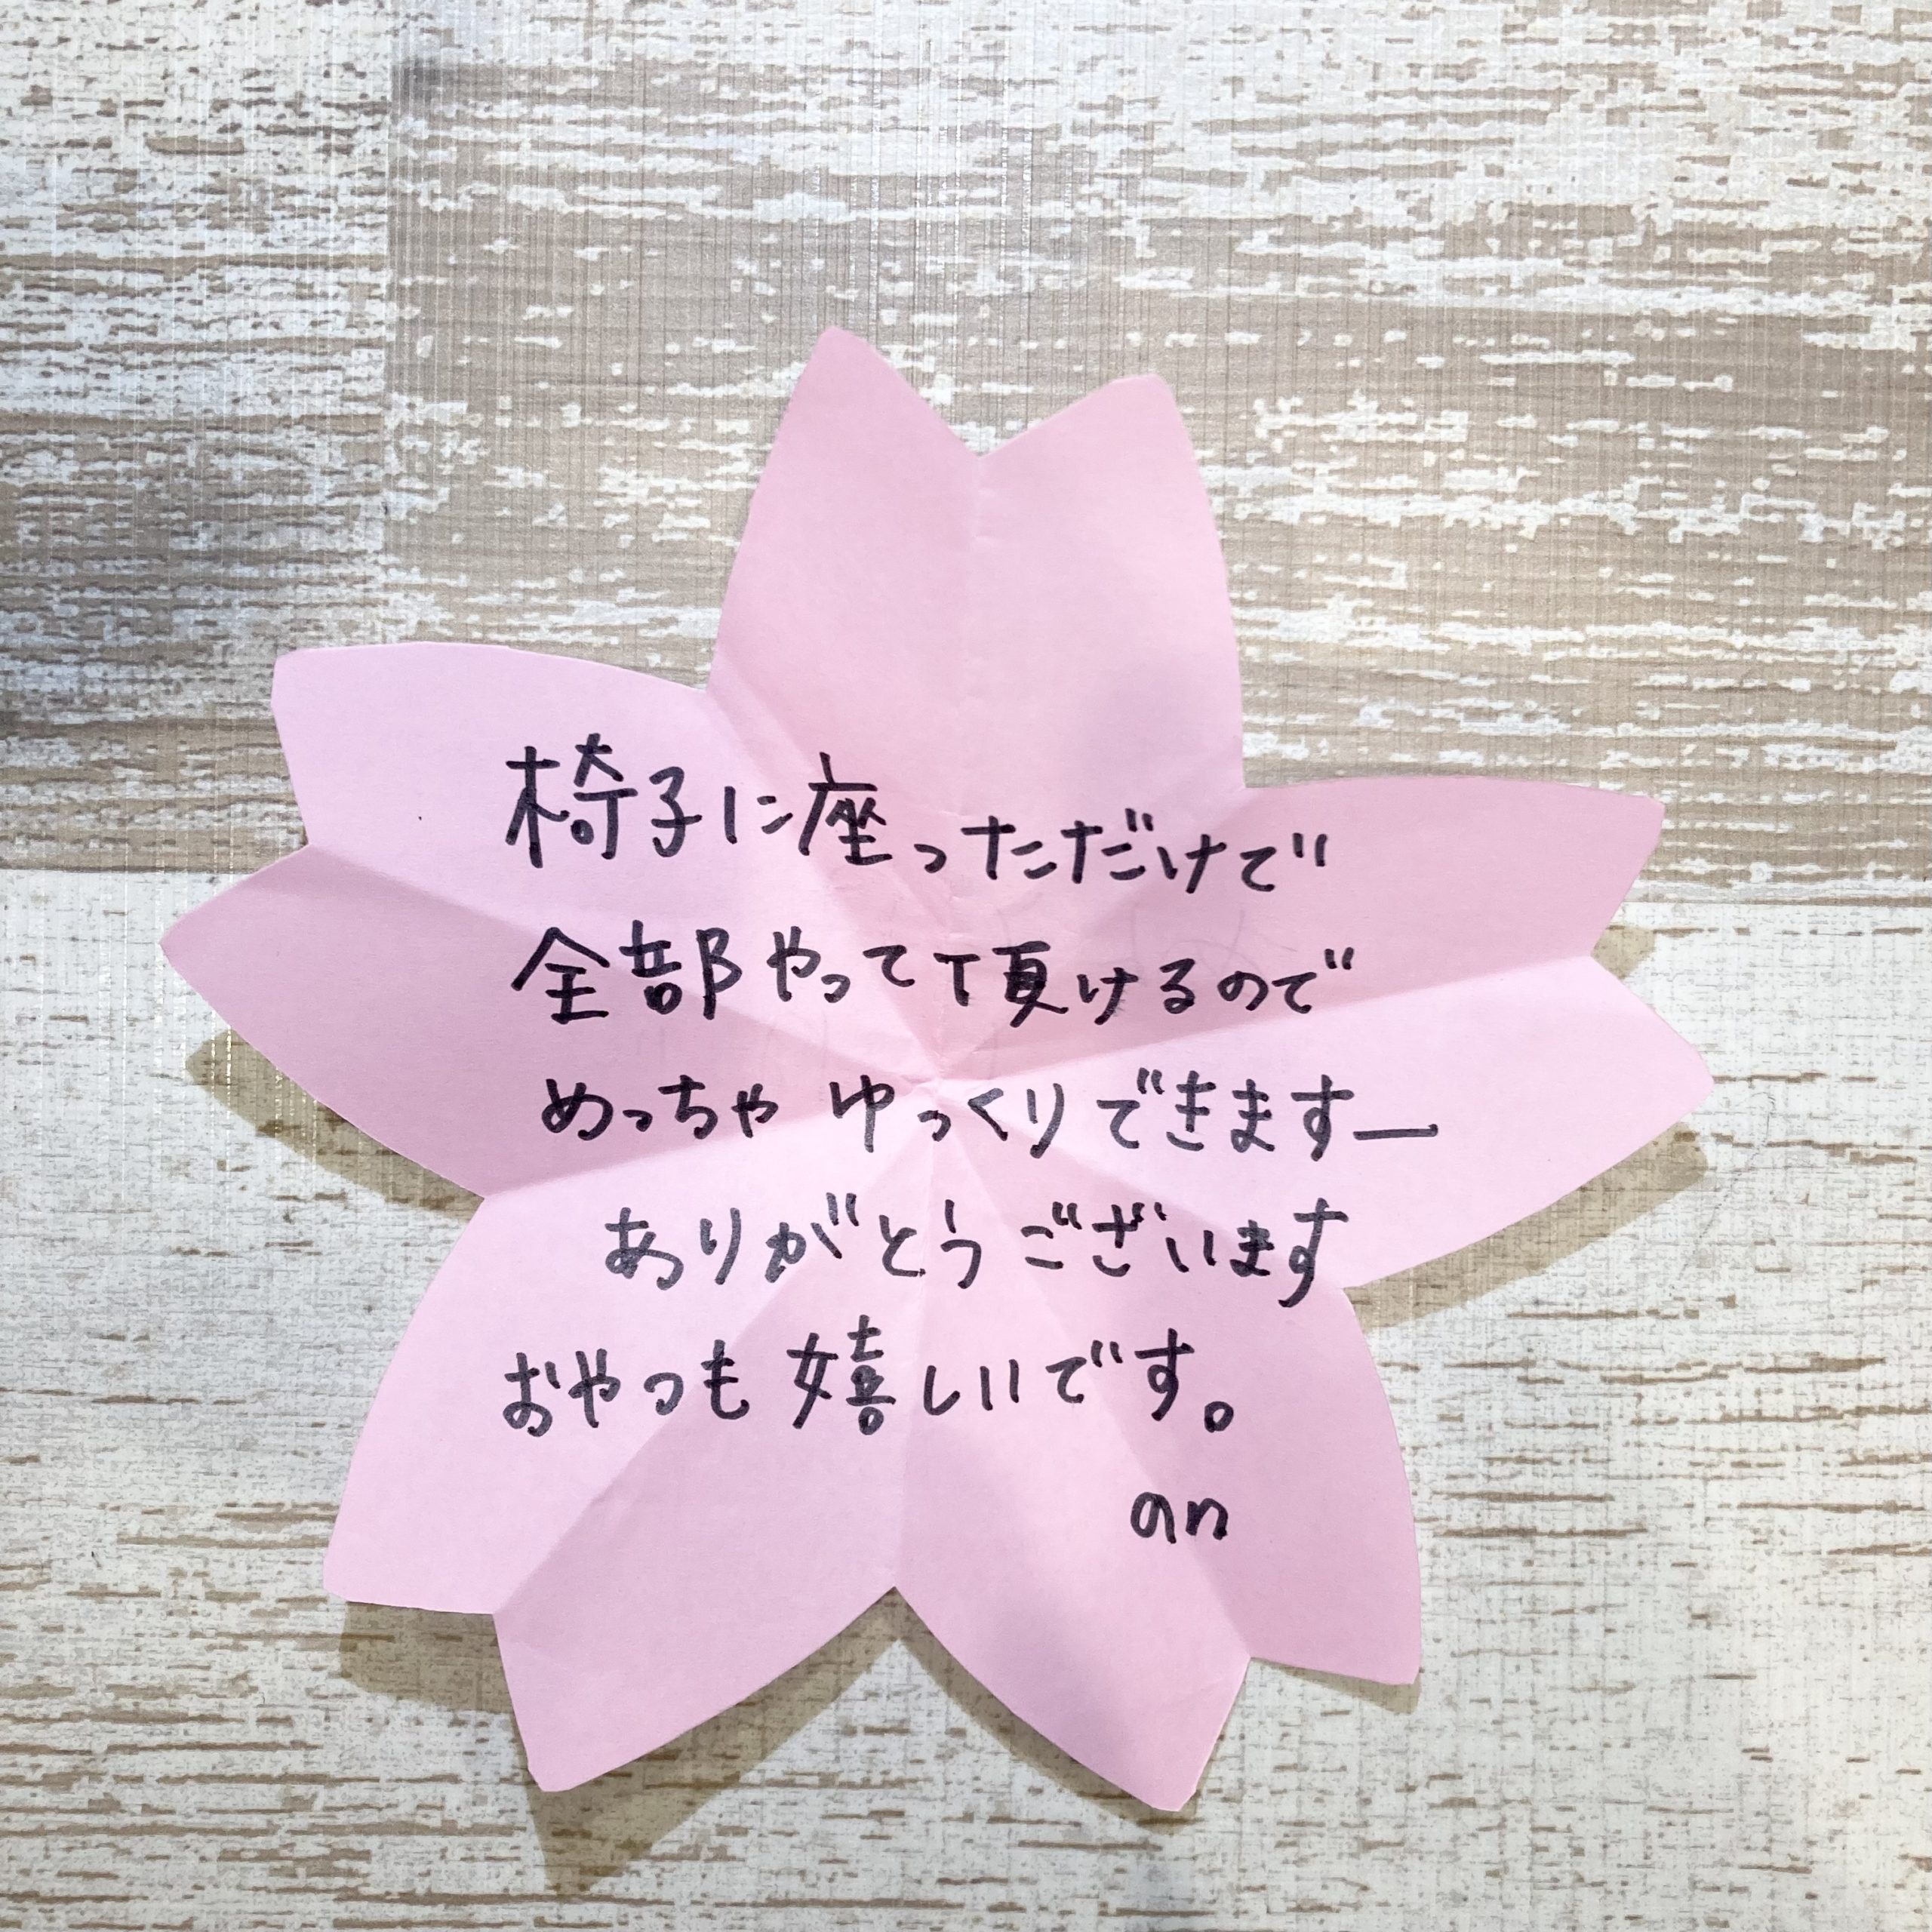 椅子に座っただけで
全部やって頂けるので
めっちゃゆっくりできますー
ありがとうございます
おやつも嬉しいです。
an